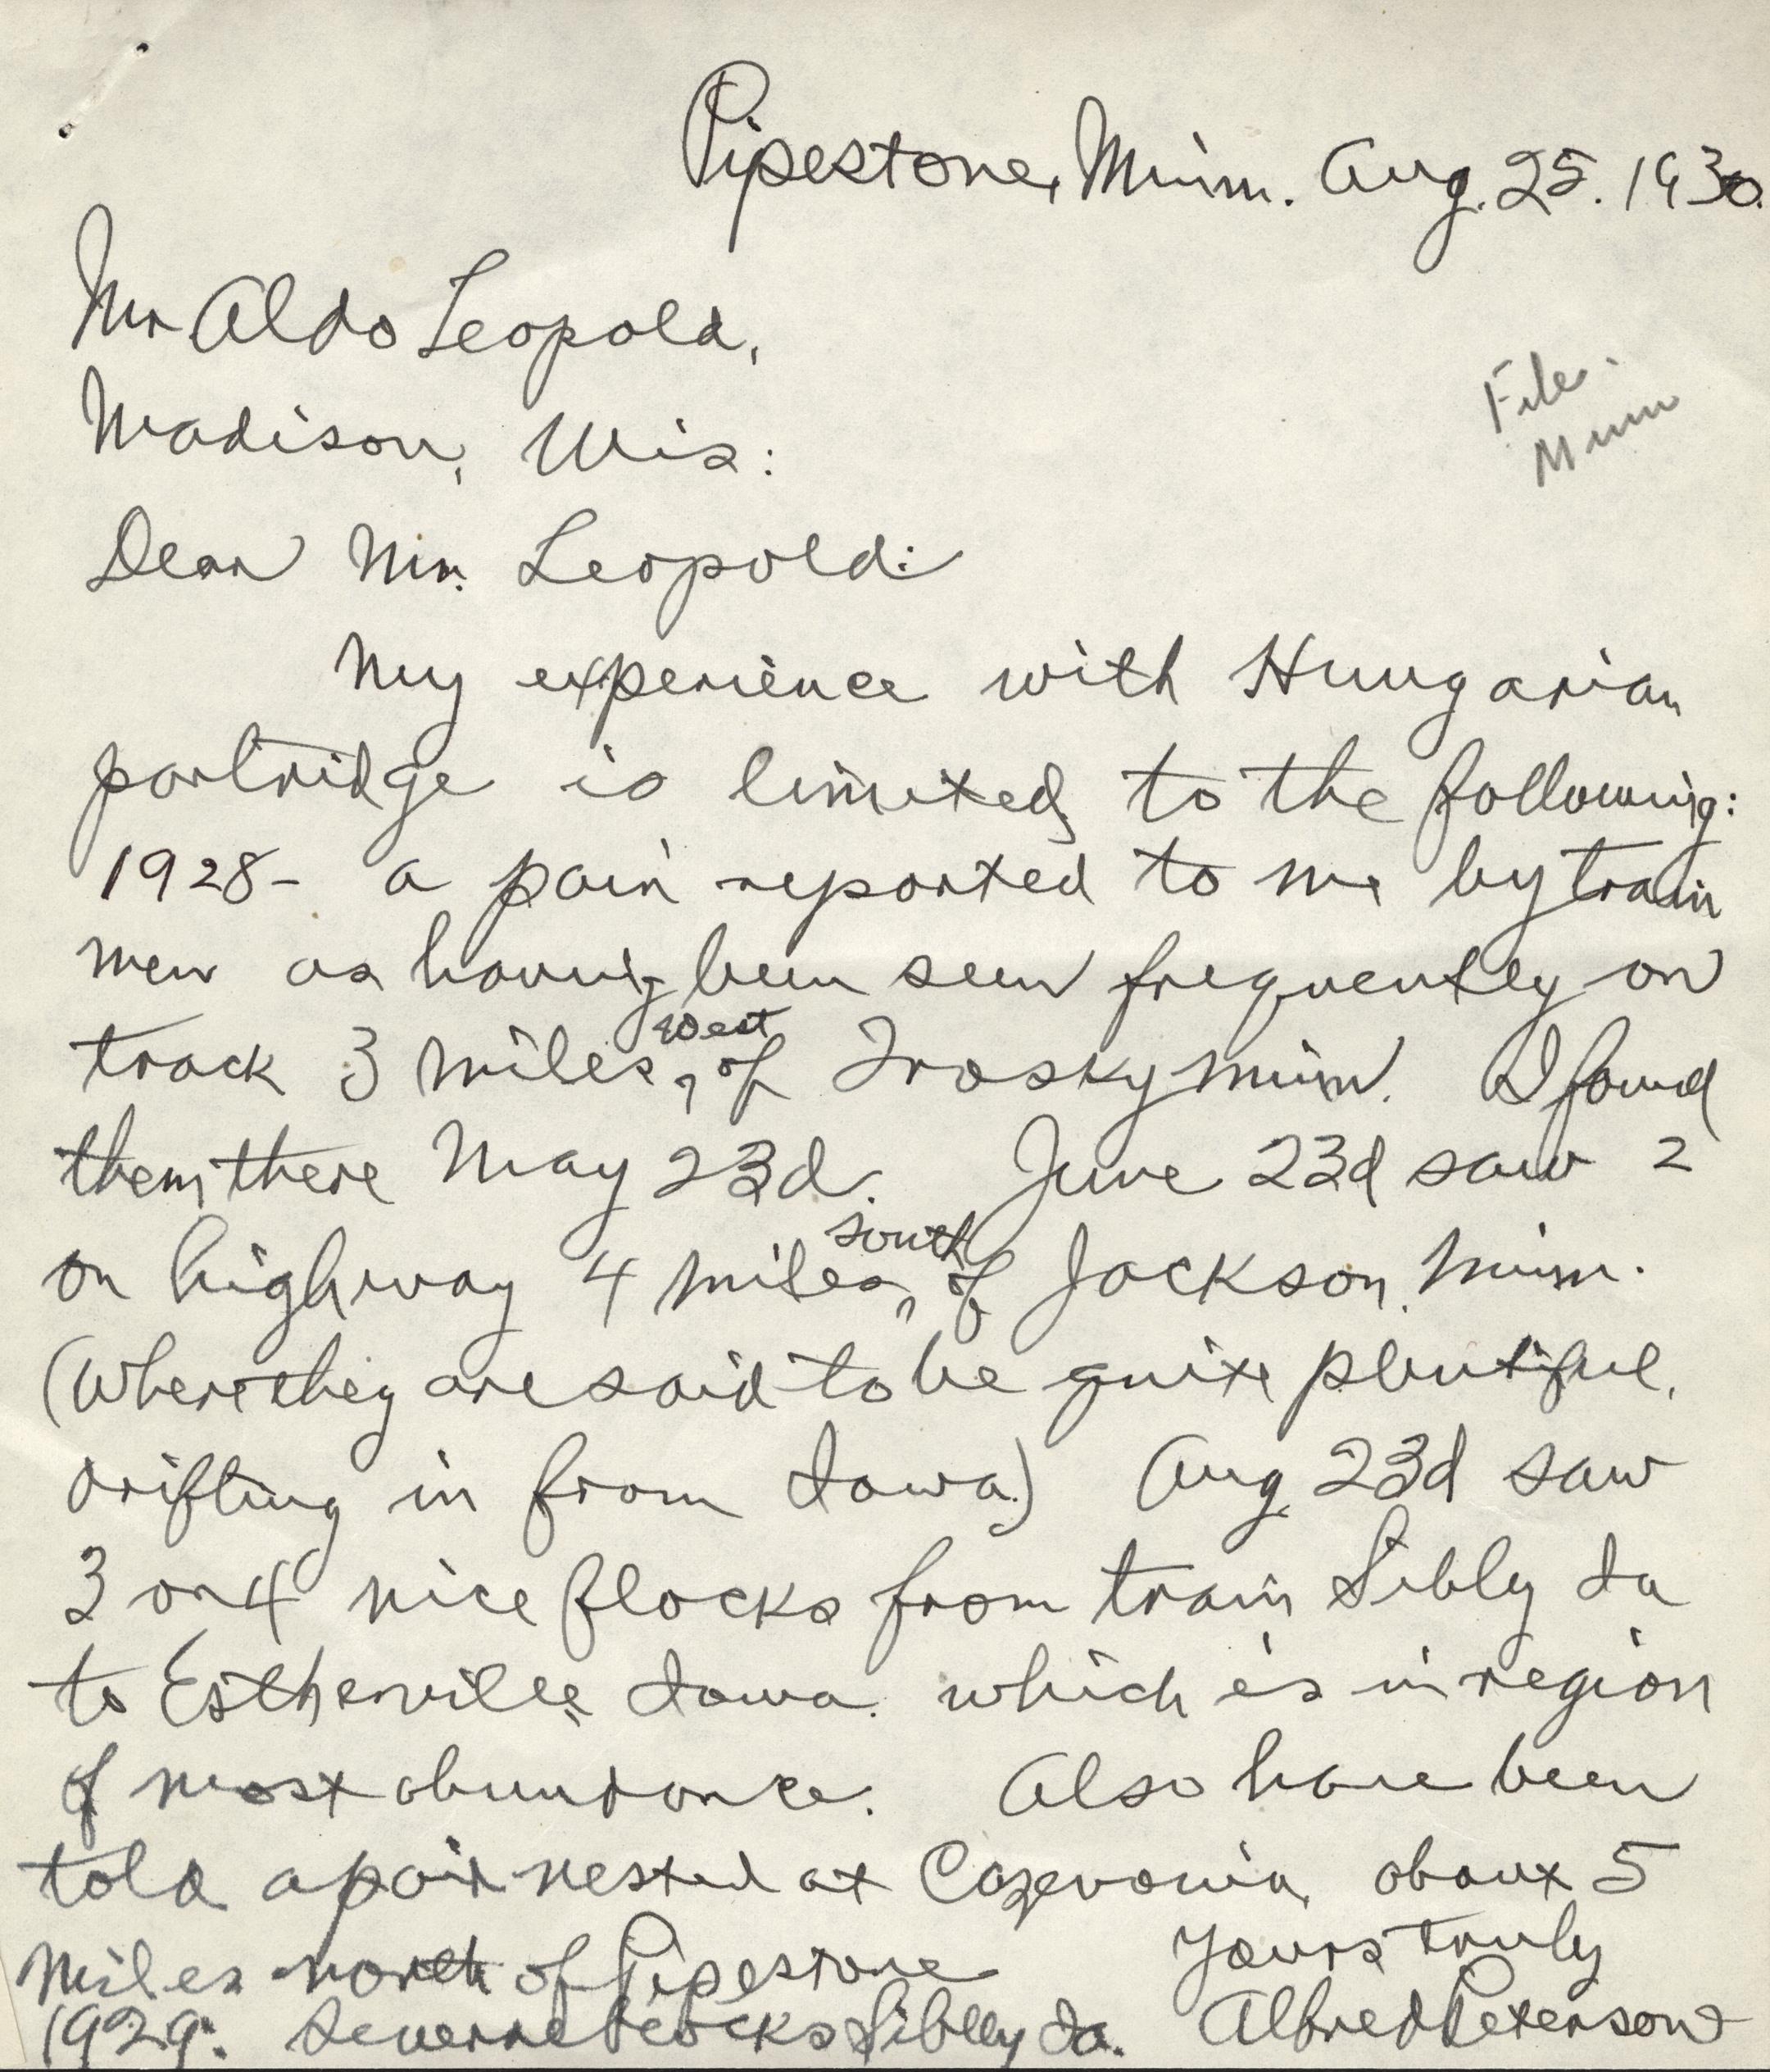 Pipestone, Minn. Aug. 25. 1930.
Mr Aldo Leopold,
Madison, Wis:
File.
Minn
Dear Mr. Leopold:
My experience with Hungarian
partridge is limited to the following:
1928 - a pair reported to me by train
men as having been seen frequently on
track 3 miles west of Trosky Minn. I found
them there May 23d. June 23d saw 2
on highway 4 miles south of Jackson, Minn.
(Where they are said to be quite plentiful,
drifting in from Iowa.) Aug 23d saw
3 or 4 nice flocks from train Sibly Ia
to Estherville Iowa. which is in region
of most abundance. Also have been
told a pair nested at Cazenovia, about 5
miles north of Pipestone
Yours truly
1929: Several flocks Siblley Ia. Alfred Peterson